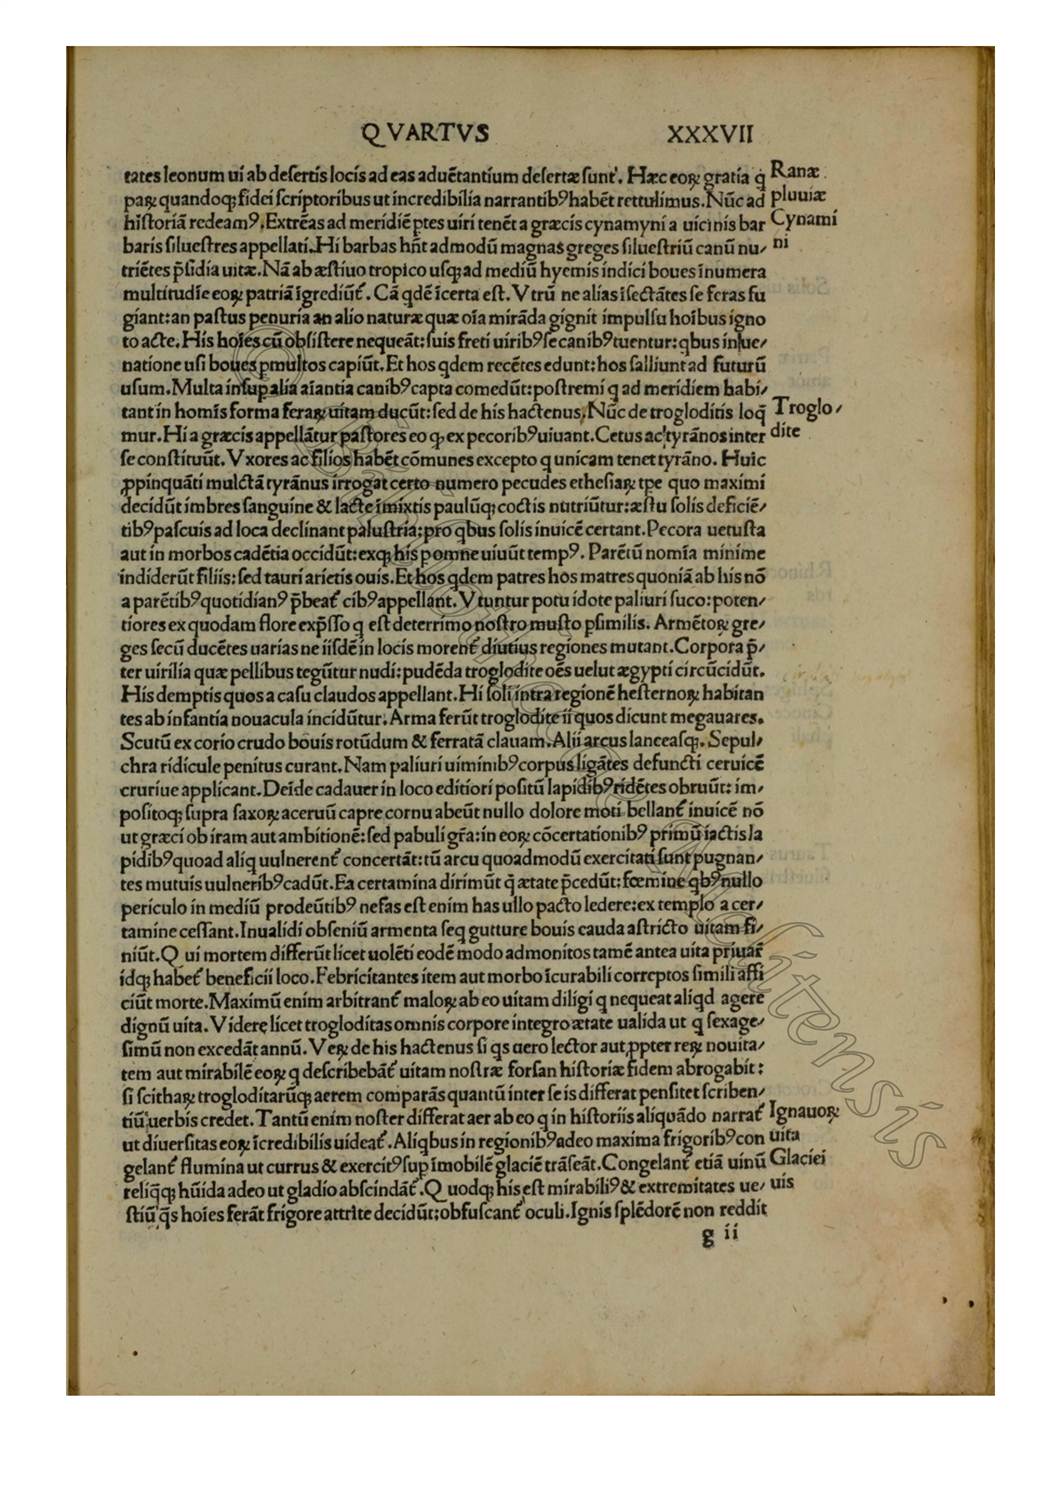 QVARTVS XXXVII
tates leonum ui ab desertis locis ad eas aduẽtantium desertæ sunt. Hæc eoꝝ gratia q̃ Ranæ
paꝝ quandoqꝫ fidei scriptoribus ut incredibilia narrantibꝰ habẽt rettulimus. Nũc ad pluuiæ
historiã redeamꝰ. Extrẽas ad meridiẽ ptes uiri tenẽt a græcis cynamyni a uicinis bar Cynami
baris siluestres appellati. Hi barbas hñt admodũ magnas greges siluestriũ canũ nu⸗ ni
triẽtes p̃sidia uitæ. Nã ab æstiuo tropico usqꝫ ad mediũ hyemis indici boues inumera
multitudĩe eoꝝ patriã ĩgrediũt. Cã qdẽ ĩcerta est. Vtrũ ne alias ĩsectãtes se feras fu
giant: an pastus penuria an alio naturæ quæ oĩa mirãda gignit impulsu hoĩbus igno
to acte. His hoĩes cũ obsistere nequeãt: suis freti uiribꝰ se canibꝰ tuentur: qbus in sue⸗
natione usi boues pmultos capiũt. Et hos qdem recẽtes edunt: hos salliunt ad futurũ
usum. Multa insup alia aĩantia canibꝰ capta comedũt: postremi q ad meridiem habi⸗
tant in homĩs forma feraꝝ uitam ducũt: sed de his hactenus. Nũc de trogloditis loq̃ Troglo⸗
mur. Hi a græcis appellãtur pastores eo ꝙ ex pecoribꝰ uiuant. Cetus ac tyrãnos inter dite
se constituũt. Vxores ac filios habẽt cõmunes excepto q unicam tenet tyrãno. Huic
ꝓpinquãti mulctã tyrãnus irrogat certo numero pecudes ethesiaꝝ tpe quo maximi
decidũt imbres sanguine & lacte ĩmixtis paulũqꝫ coctis nutriũtur: æstu solis deficiẽ⸗
tibꝰ pascuis ad loca declinant palustria: pro qbus solis inuicẽ certant. Pecora uetusta
aut in morbos cadẽtia occidũt: exqꝫ his p omne uiuũt tempꝰ. Parẽtũ nomĩa minime
indiderũt filiis: sed tauri arietis ouis. Et hos qdem patres hos matres quoniã ab his nõ
a parẽtibꝰ quotidianꝰ p̃beat cibꝰ appellant. Vtuntur potu idote paliuri suco: poten⸗
tiores ex quodam flore exp̃sso q est deterrimo nostro musto psimilis. Armẽtoꝝ gre⸗
ges secũ ducẽtes uarias ne iisdẽ in locis morent diutius regiones mutant. Corpora p̃⸗
ter uirilia quæ pellibus tegũtur nudi: pudẽda troglodite oẽs uelut ægypti circũcidũt.
His demptis quos a casu claudos appellant. Hi soli intra regionẽ hesternoꝝ habitan
tes ab infantia nouacula incidũtur. Arma ferũt troglodite ii quos dicunt megauares.
Scutũ ex corio crudo bouis rotũdum & ferratã clauam. Alii arcus lanceasqꝫ. Sepul⸗
chra ridicule penitus curant. Nam paliuri uiminibꝰ corpus ligãtes defuncti ceruicẽ
cruriue applicant. Deĩde cadauer in loco editiori positũ lapidibꝰ ridẽtes obruũt: im⸗
positoqꝫ supra saxoꝝ aceruũ capre cornu abeũt nullo dolore moti bellant inuicẽ nõ
ut græci ob iram aut ambitionẽ: sed pabuli gr̃a: in eoꝝ cõcertationibꝰ primũ iactis la
pidibꝰ quoad aliq uulnerent concertãt: tũ arcu quoadmodũ exercitati sunt pugnan⸗
tes mutuis uulneribꝰ cadũt. Ea certamina dirimũt q̃ ætate p̃cedũt: fœmine qbꝰ nullo
periculo in mediũ prodeũtibꝰ nefas est enim has ullo pacto ledere: ex templo a cer⸗
tamine cessant. Inualidi ob seniũ armenta seq gutture bouis cauda astricto uitam fi⸗
niũt. Qui mortem differũt licet uolẽti eodẽ modo admonitos tamẽ antea uita priuar̃
idqꝫ habet beneficii loco. Febricitantes item aut morbo ĩcurabili correptos simili affi
ciũt morte. Maximũ enim arbitrant maloꝝ ab eo uitam diligi q nequeat aliqd agere
dignũ uita. Videre licet trogloditas omnis corpore integro ætate ualida ut q sexage⸗
simũ non excedãt annũ. Veꝝ de his hactenus si qs aero lector aut ꝓpter reꝝ nouita⸗
tem aut mirabilẽ eoꝝ q describebãt uitam nostræ forsan historiæ fidem abrogabit:
si scithaꝝ trogloditarũqꝫ aerem comparãs quantũ inter se is differat pensitet scriben⸗
tiũ uerbis credet. Tantũ enim noster differat aer ab eo q in historiis aliquãdo narrat Ignauoꝝ
ut diuersitas eoꝝ ĩcredibilis uideat. Aliqbus in regionibꝰ adeo maxima frigoribꝰ con uita
gelant flumina ut currus & exercitꝰ sup ĩmobilẽ glaciẽ trãseãt. Congelant etiã uinũ Glaciei
reliq̃qꝫ hũida adeo ut gladio abscindãt. Quodqꝫ his est mirabiliꝰ & extremitates ue⸗ uis
stiũ q̃s hoĩes ferãt frigore attrite decidũt: obfuscant oculi. Ignis splẽdorẽ non reddit
g ii